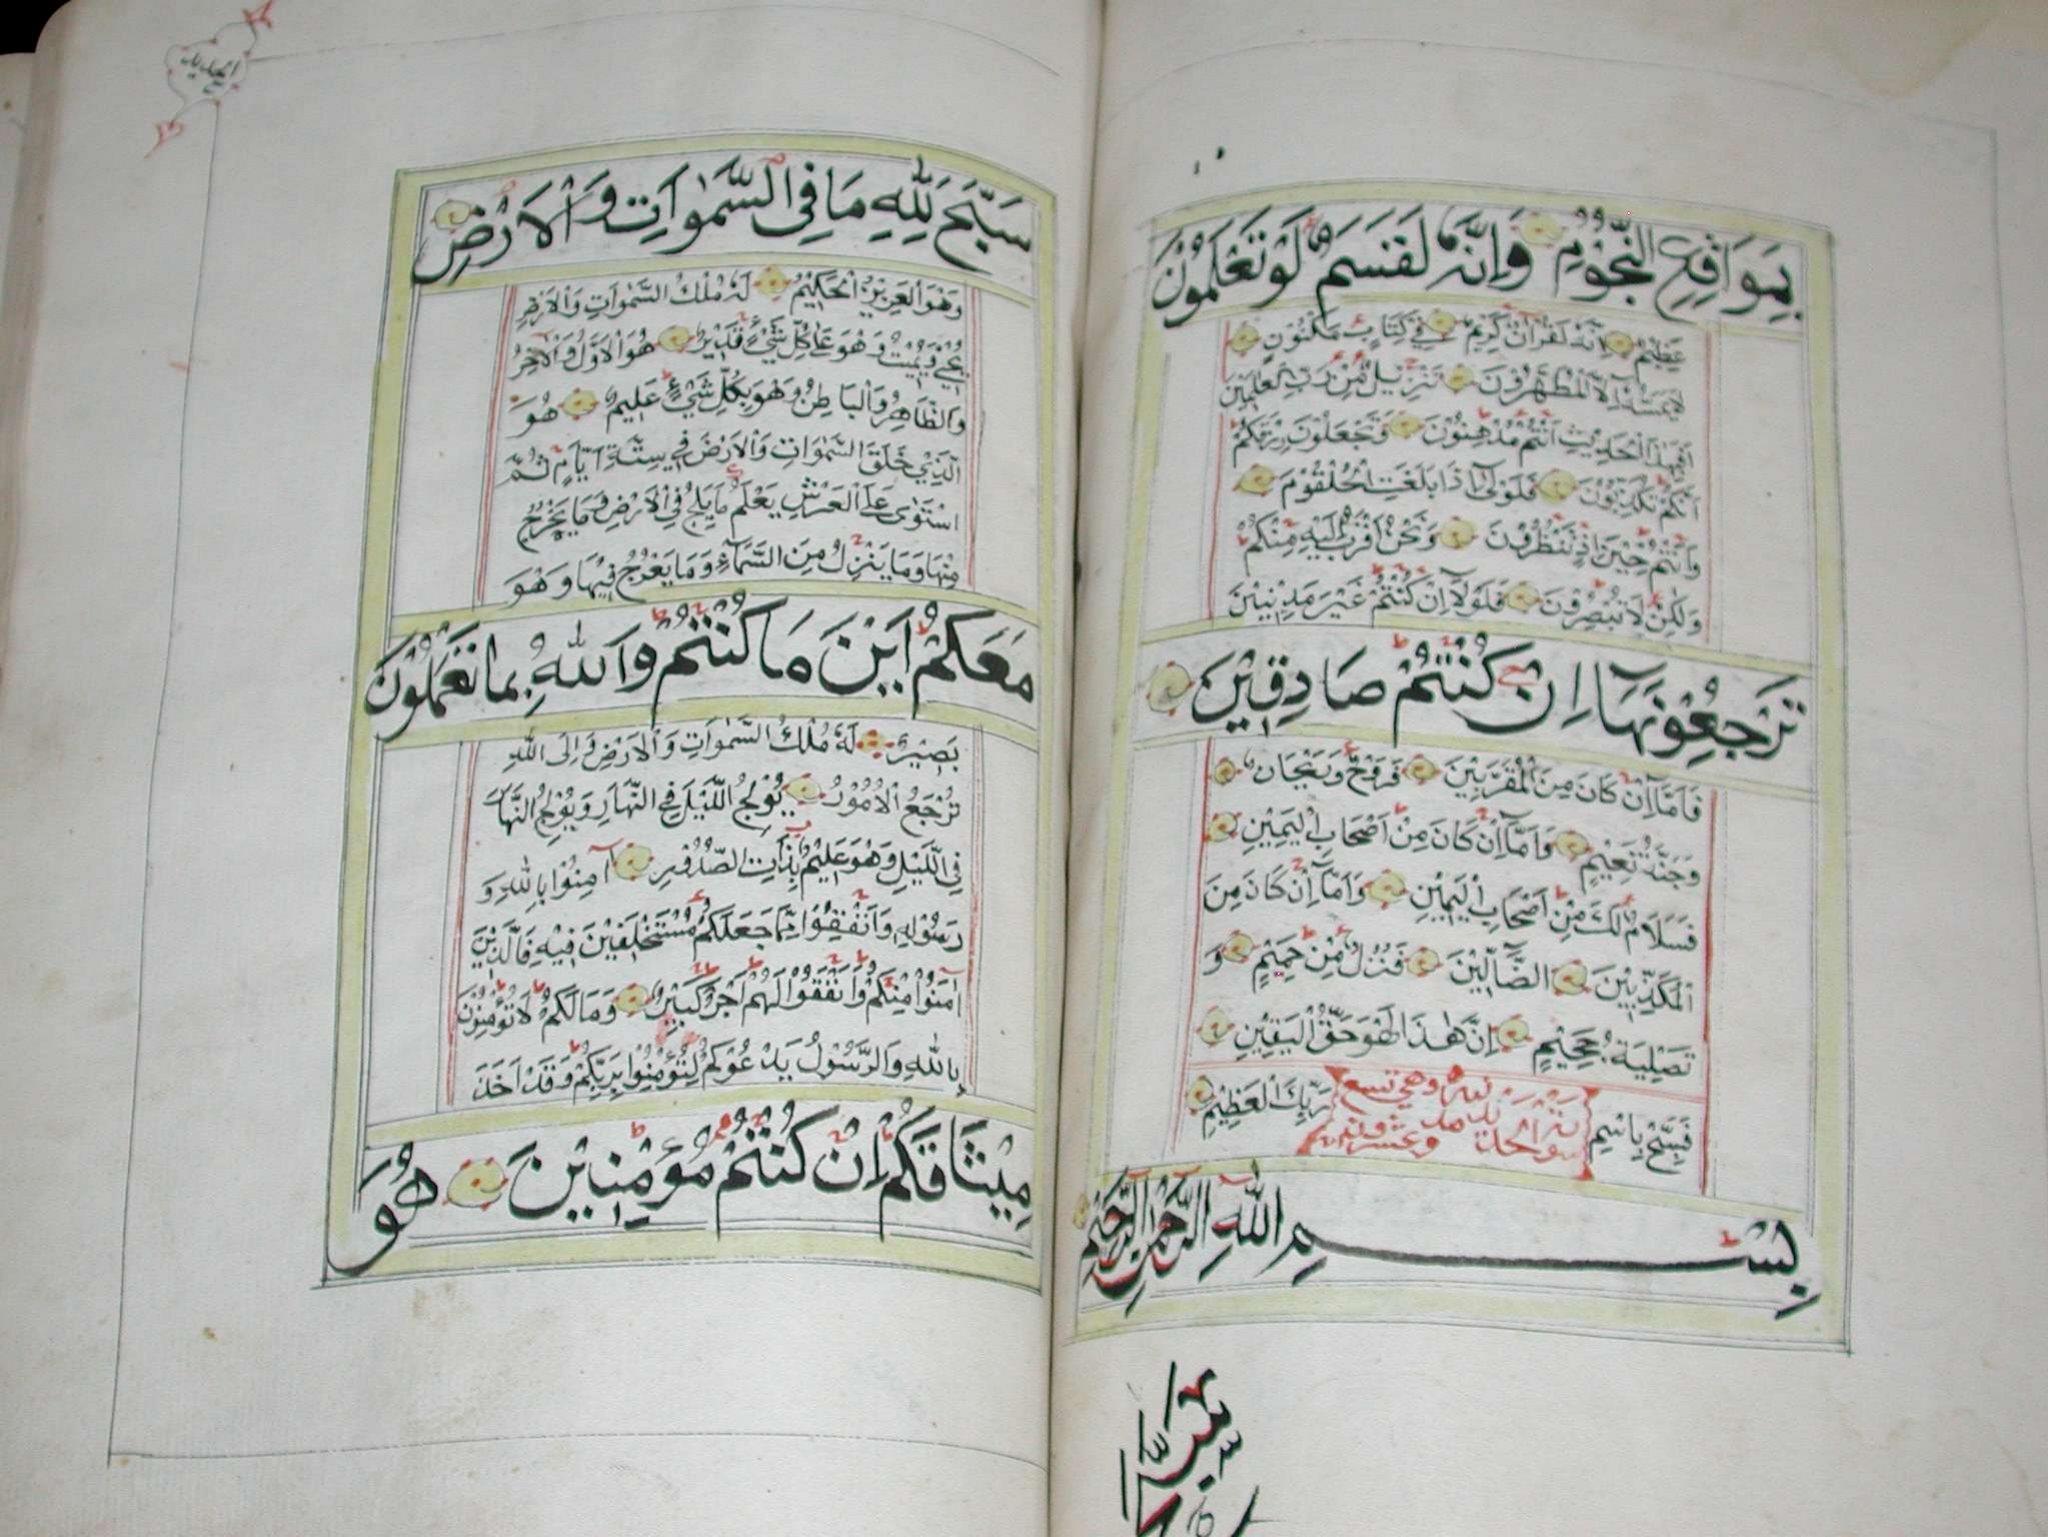 بِمَوَاقِعِ النُّجُوْمِ وَاِنَّهُ لَقَسَمٌ لَوْ تَعْلَمُوْنَ
عَظِيْمٌ اِنَّهُ لَقُرْاٰنٌ كَرِيْمٌ فِيْ كِتَابٍ مَكْنُوْنٍ
لَا يَمَسُّهُ اِلَّا الْمُطَهَّرُوْنَ تَنْزِيْلٌ مِنْ رَبِّ الْعٰلَمِيْنَ
اَفَبِهٰذَا الْحَدِيْثِ اَنْتُمْ مُدْهِنُوْنَ وَتَجْعَلُوْنَ رِزْقَكُمْ
اَنَّكُمْ تُكَذِّبُوْنَ فَلَوْلَا اِذَا بَلَغَتِ الْحُلْقُوْمَ
وَاَنْتُمْ حِيْنَئِذٍ تَنْظُرُوْنَ وَنَحْنُ اَقْرَبُ اِلَيْهِ مِنْكُمْ
وَلٰكِنْ لَا تُبْصِرُوْنَ فَلَوْلَا اِنْ كُنْتُمْ غَيْرَ مَدِيْنِيْنَ
تَرْجِعُوْنَهَا اِنْ كُنْتُمْ صَادِقِيْنَ
فَاَمَّا اِنْ كَانَ مِنَ الْمُقَرَّبِيْنَ فَرَوْحٌ وَرَيْحَانٌ
وَجَنَّةُ نَعِيْمٍ وَاَمَّا اِنْ كَانَ مِنْ اَصْحَابِ الْيَمِيْنِ
فَسَلَامٌ لَكَ مِنْ اَصْحَابِ الْيَمِيْنِ وَاَمَّا اِنْ كَانَ مِنَ
الْمُكَذِّبِيْنَ الضَّالِّيْنَ فَنُزُلٌ مِنْ حَمِيْمٍ وَ
تَصْلِيَةُ جَحِيْمٍ اِنَّ هٰذَا لَهُوَ حَقُّ الْيَقِيْنِ
فَسَبِّحْ بِاسْمِ رَبِّكَ الْعَظِيْمِ
سورة الحديد وهي تسع وعشرون اية
بِسْمِ اللهِ الرَّحْمٰنِ الرَّحِيْمِ
الحديد
سَبَّحَ لِلّٰهِ مَا فِى السَّمٰوَاتِ وَالْاَرْضِ
وَهُوَ الْعَزِيْزُ الْحَكِيْمُ لَهُ مُلْكُ السَّمٰوَاتِ وَالْاَرْضِ
يُحْيِيْ وَيُمِيْتُ وَهُوَ عَلٰى كُلِّ شَيْءٍ قَدِيْرٌ هُوَ الْاَوَّلُ وَالْاٰخِرُ
وَالظَّاهِرُ وَالْبَاطِنُ وَهُوَ بِكُلِّ شَيْءٍ عَلِيْمٌ هُوَ
الَّذِيْ خَلَقَ السَّمٰوَاتِ وَالْاَرْضَ فِيْ سِتَّةِ اَيَّامٍ ثُمَّ
اسْتَوٰى عَلَى الْعَرْشِ يَعْلَمُ مَا يَلِجُ فِى الْاَرْضِ وَمَا يَخْرُجُ
مِنْهَا وَمَا يَنْزِلُ مِنَ السَّمَآءِ وَمَا يَعْرُجُ فِيْهَا وَهُوَ
مَعَكُمْ اَيْنَ مَا كُنْتُمْ وَاللهُ بِمَا تَعْمَلُوْنَ
بَصِيْرٌ لَهُ مُلْكُ السَّمٰوَاتِ وَالْاَرْضِ وَاِلَى اللهِ
تُرْجَعُ الْاُمُوْرُ يُوْلِجُ اللَّيْلَ فِى النَّهَارِ وَيُوْلِجُ النَّهَارَ
فِى اللَّيْلِ وَهُوَ عَلِيْمٌ بِذَاتِ الصُّدُوْرِ اٰمِنُوْا بِاللهِ وَ
رَسُوْلِهِ وَاَنْفِقُوْا مِمَّا جَعَلَكُمْ مُسْتَخْلَفِيْنَ فِيْهِ فَالَّذِيْنَ
اٰمَنُوْا مِنْكُمْ وَاَنْفَقُوْا لَهُمْ اَجْرٌ كَبِيْرٌ وَمَا لَكُمْ لَا تُؤْمِنُوْنَ
بِاللهِ وَالرَّسُوْلُ يَدْعُوْكُمْ لِتُؤْمِنُوْا بِرَبِّكُمْ وَقَدْ اَخَذَ
مِيْثَاقَكُمْ اِنْ كُنْتُمْ مُؤْمِنِيْنَ هُوَ